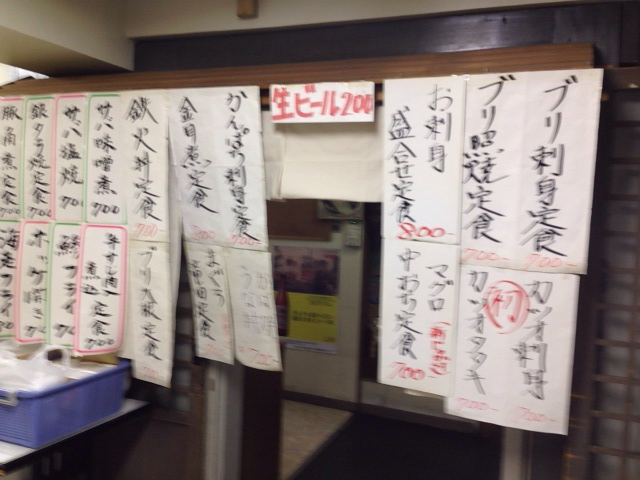 ブリ刺身定食
700-
ブリ照焼定食
700-
お刺身
盛合せ定食
800-
生ビール200
かんぱち刺身定食
700-
金目煮定食
鉄火丼定食
700
サバ味噌煮
700
サバ塩焼
700
銀タラ焼定食
700
豚角煮定食
700
カツオ刺身
700-
カツオタタキ
700-
マグロ
中おち定食
700
まぐろ
ブリ大根定食
700
牛すじ肉
煮込定食
700
フライ
700
ホッケ開き
700
海老フライ
700